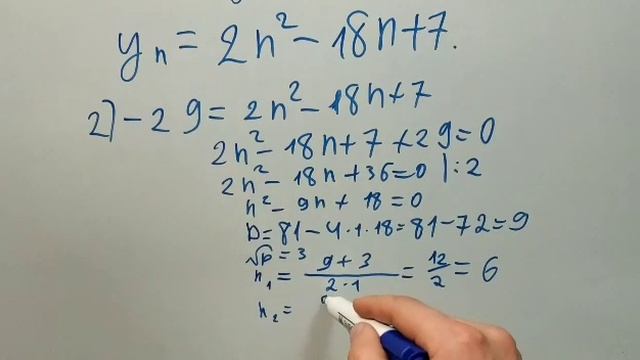 yₙ = 2n² - 18n + 7.
2) - 29 = 2n² - 18n + 7
2n² - 18n + 7 + 29 = 0
2n² - 18n + 36 = 0 | : 2
n² - 9n + 18 = 0
D = 81 - 4 · 1 · 18 = 81 - 72 = 9
√D = 3
n₁ = (9 + 3)/(2 · 1) = 12/2 = 6
n₂ =